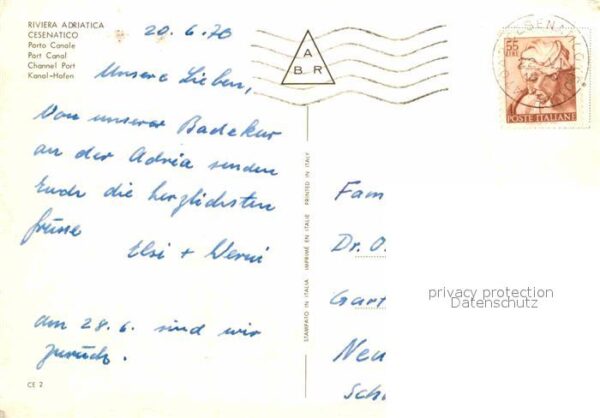 RIVIERA ADRIATICA
CESENATICO
Porto Canale
Port Canal
Channel Port
Kanal-Hafen
20.6.70
Unsere Lieben,
Von unserer Badekur
an der Adria senden
Euch die herzlichsten
Grüsse
Elsi + Werni
am 28.6. sind wir
zurück.
CE 2
STAMPATO IN ITALIA IMPRIMÉ EN ITALIE PRINTED IN ITALY
A
B R
55
LIRE
POSTE ITALIANE
Fam
Dr. O.
Gart
Neu
Sch
privacy protection
Datenschutz